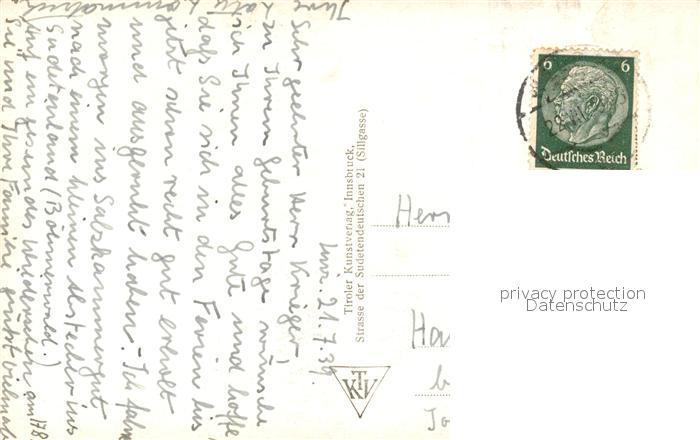 Inn. 21.7.39.
Sehr geehrter Herr Krieger,
zu Ihrem Geburtstage wünsche
ich Ihnen alles Gute und hoffe,
daß Sie sich in den Ferien bis
jetzt schon recht gut erholt
und ausgeruht haben. Ich fahre
morgen ins Salzkammergut
nach einem kleinen Abstecher ins
Sudetenland (Böhmerwald.)
Auf ein gesundes Wiedersehen am 17.8.
Sie und Ihre Familie grüßt vielmals
Ihre
Tiroler Kunstverlag, Innsbruck,
Strasse der Sudetendeutschen 21 (Sillgasse)
KTV
6 6
Deutsches Reich
Herr
Ha
b
privacy protection
Datenschutz